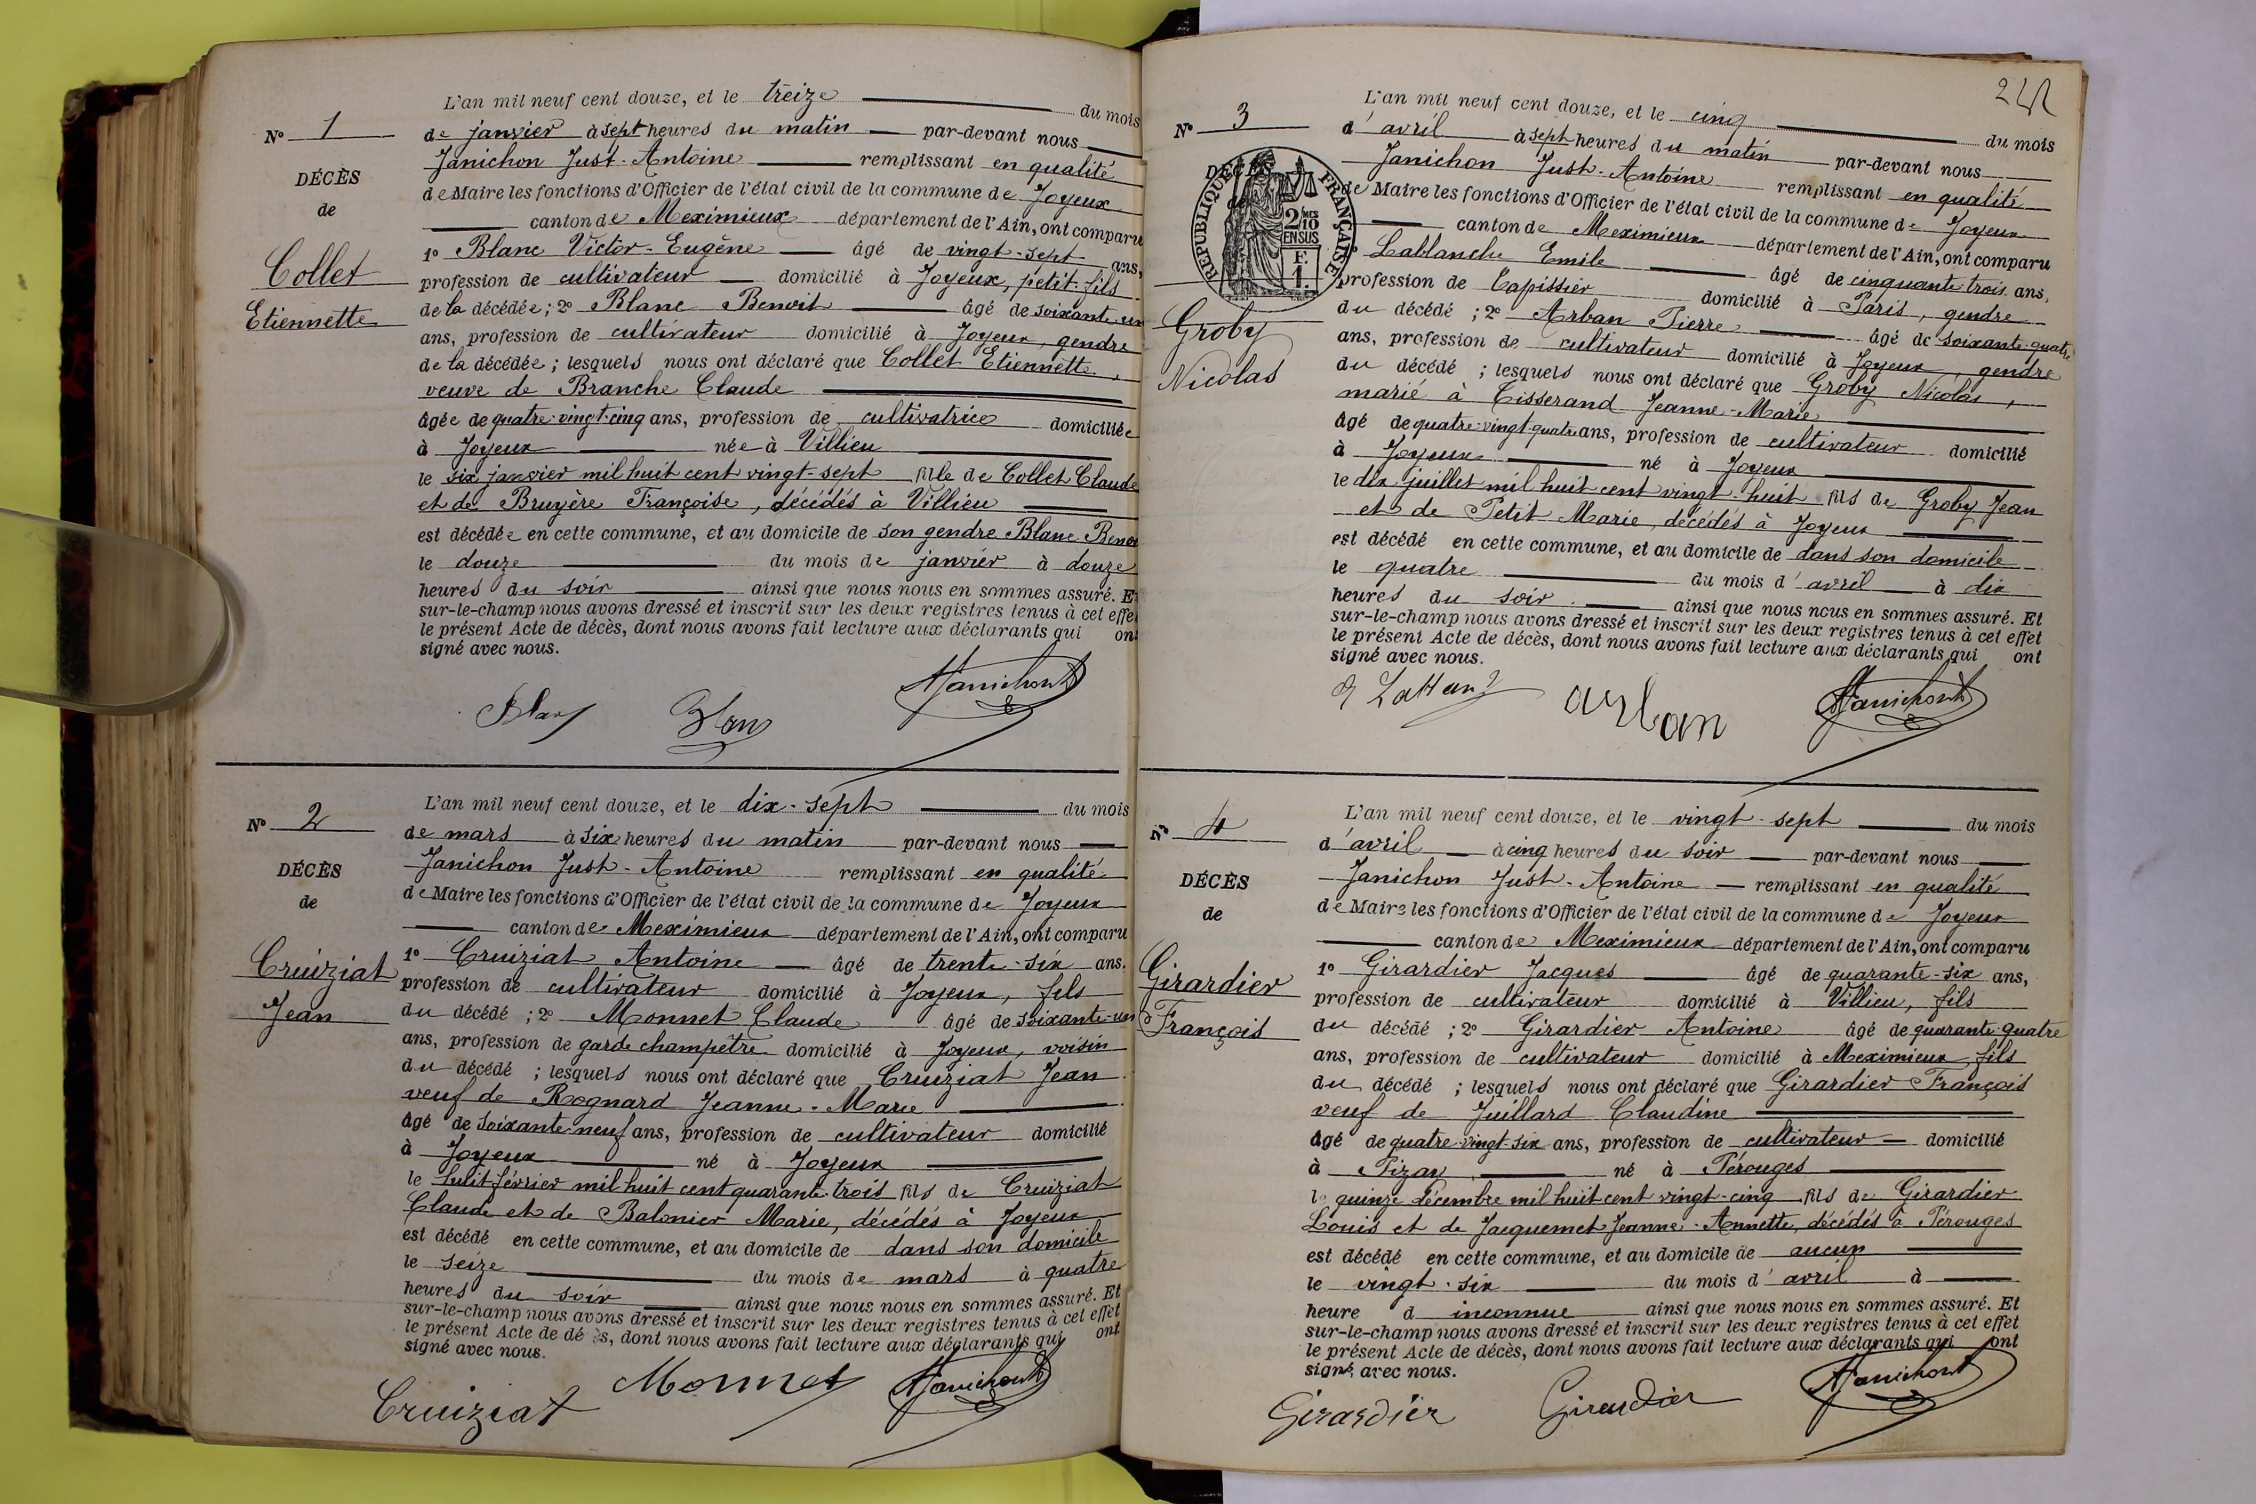 L'an mil neuf cent douze, et le treize du mois
N° 1
de janvier à sept heures du matin par-devant nous
Janichon Just-Antoine remplissant en qualité
DÉCÈS
de Maire les fonctions d'Officier de l'état civil de la commune de Joyeux
de
canton de Meximieux département de l'Ain, ont comparu
1° Blanc Victor-Eugène âgé de vingt-sept ans,
Collet
profession de cultivateur domicilié à Joyeux, petit-fils
Etiennette
de la décédée; 2° Blanc Benoit âgé de soixante un
ans, profession de cultivateur domicilié à Joyeux, gendre
de la décédée; lesquels nous ont déclaré que Collet Etiennette,
veuve de Branche Claude
âgée de quatre-vingt-cinq ans, profession de cultivatrice domiciliée
à Joyeux née à Villieu
le six janvier mil huit cent vingt-sept fille de Collet Claude
et de Bruyère Françoise, décédés à Villieu
est décédée en cette commune, et au domicile de son gendre Blanc Benoi
le douze du mois de janvier à douze
heures du soir ainsi que nous nous en sommes assuré. Et
sur-le-champ nous avons dressé et inscrit sur les deux registres tenus à cet effet
le présent Acte de décès, dont nous avons fait lecture aux déclarants qui ont
signé avec nous.
Blanc Blanc JJanichon
L'an mil neuf cent douze, et le dix-sept du mois
N° 2
de mars à six heures du matin par-devant nous
Janichon Just-Antoine remplissant en qualité
DÉCÈS
de Maire les fonctions d'Officier de l'état civil de la commune de Joyeux
de
canton de Meximieux département de l'Ain, ont comparu
1° Cruiziat Antoine âgé de trente-six ans,
Cruiziat
profession de cultivateur domicilié à Joyeux, fils
Jean
du décédé; 2° Monnet Claude âgé de soixante-un
ans, profession de garde champêtre domicilié à Joyeux, voisin
du décédé; lesquels nous ont déclaré que Cruiziat Jean
veuf de Rognard Jeanne-Marie
âgé de soixante-neuf ans, profession de cultivateur domicilié
à Joyeux né à Joyeux
le huit février mil huit cent quarante-trois fils de Cruiziat
Claude et de Balonier Marie, décédés à Joyeux
est décédé en cette commune, et au domicile de dans son domicile
le seize du mois de mars à quatre
heures du soir ainsi que nous nous en sommes assuré. Et
sur-le-champ nous avons dressé et inscrit sur les deux registres tenus à cet effet
le présent Acte de décès, dont nous avons fait lecture aux déclarants qui ont
signé avec nous.
Cruiziat Monnet JJanichon
L'an mil neuf cent douze, et le cinq du mois
N° 3
d'avril à sept heures du matin par-devant nous
Janichon Just-Antoine remplissant en qualité
DÉCÈS
RÉPUBLIQUE FRANÇAISE
2/10 MES EN SUS
F. 1.
de Maire les fonctions d'Officier de l'état civil de la commune de Joyeux
canton de Meximieux département de l'Ain, ont comparu
Lablanche Emile âgé de cinquante trois ans,
profession de Tapissier domicilié à Paris, gendre
Groby
du décédé; 2° Arban Pierre âgé de soixante-quatre
ans, profession de cultivateur domicilié à Joyeux, gendre
Nicolas
du décédé; lesquels nous ont déclaré que Groby Nicolas,
marié à Tisserand Jeanne-Marie
âgé de quatre-vingt-quatre ans, profession de cultivateur domicilié
à Joyeux né à Joyeux
le dix juillet mil huit cent vingt-huit fils de Groby Jean
et de Petit Marie, décédés à Joyeux
est décédé en cette commune, et au domicile de dans son domicile
le quatre du mois d'avril à dix
heures du soir ainsi que nous nous en sommes assuré. Et
sur-le-champ nous avons dressé et inscrit sur les deux registres tenus à cet effet
le présent Acte de décès, dont nous avons fait lecture aux déclarants qui ont
signé avec nous.
arban JJanichon
L'an mil neuf cent douze, et le vingt-sept du mois
N° 4
d'avril à cinq heures du soir par-devant nous
Janichon Just-Antoine remplissant en qualité
DÉCÈS
de Maire les fonctions d'Officier de l'état civil de la commune de Joyeux
de
canton de Meximieux département de l'Ain, ont comparu
1° Girardier Jacques âgé de quarante-six ans,
Girardier
profession de cultivateur domicilié à Villieu, fils
François
du décédé; 2° Girardier Antoine âgé de quarante-quatre
ans, profession de cultivateur domicilié à Meximieux, fils
du décédé; lesquels nous ont déclaré que Girardier François
veuf de Juillard Claudine
âgé de quatre-vingt-six ans, profession de cultivateur domicilié
à Pizay né à Pérouges
le quinze décembre mil huit cent vingt-cinq fils de Girardier
Louis et de Jacquemet Jeanne-Annette, décédés à Pérouges
est décédé en cette commune, et au domicile de aucun
le vingt-six du mois d'avril à
heure d inconnue ainsi que nous nous en sommes assuré. Et
sur-le-champ nous avons dressé et inscrit sur les deux registres tenus à cet effet
le présent Acte de décès, dont nous avons fait lecture aux déclarants qui ont
signé avec nous.
Girardier Girardier JJanichon